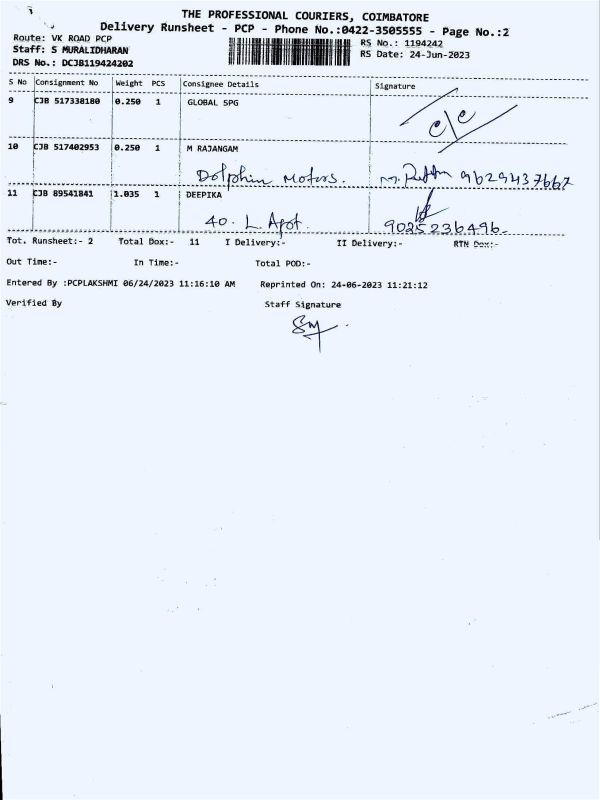 THE PROFESSIONAL COURIERS, COIMBATORE
Delivery Runsheet - PCP - Phone No.:0422-3505555 - Page No.:2
Route: VK ROAD PCP RS No.: 1194242
Staff: S MURALIDHARAN RS Date: 24-Jun-2023
DRS No.: DCJB119424202
S No Consignment No Weight PCS Consignee Details Signature
9 CJB 517338180 0.250 1 GLOBAL SPG
c/c
10 CJB 517402953 0.250 1 M RAJANGAM
Dolphin Motors. 9629437667
11 CJB 89541841 1.035 1 DEEPIKA
40. L Apot. 9025236496
Tot. Runsheet:- 2 Total Dox:- 11 I Delivery:- II Delivery:- RTN Dox:-
Out Time:- In Time:- Total POD:-
Entered By :PCPLAKSHMI 06/24/2023 11:16:10 AM Reprinted On: 24-06-2023 11:21:12
Verified By Staff Signature